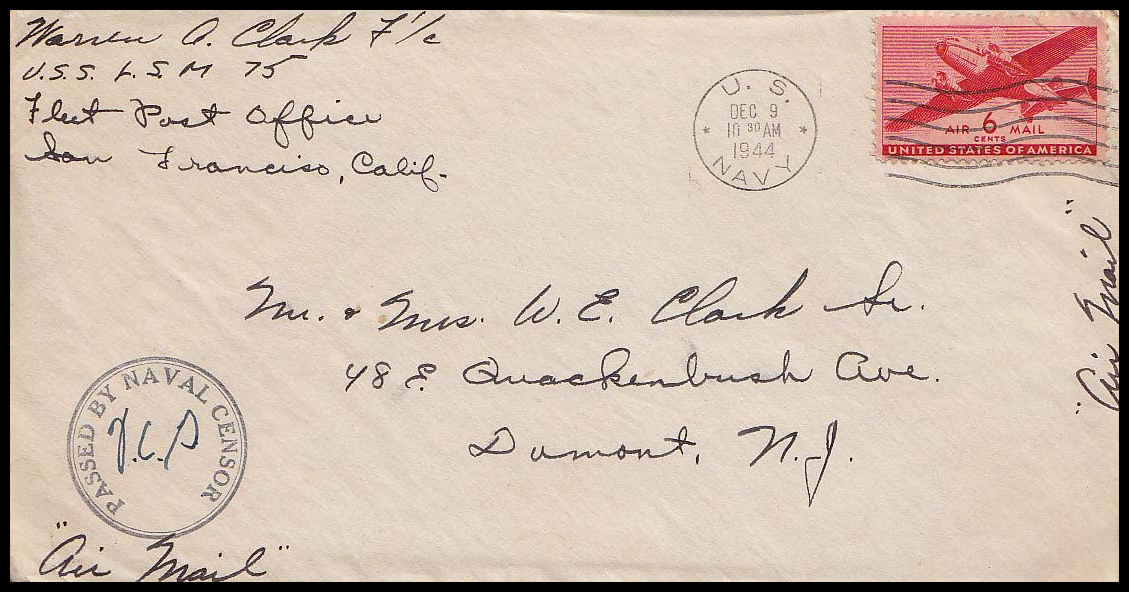 Warren A. Clark F 1/c
U.S.S. L.S.M 75
Fleet Post Office
San Francisco, Calif.
U. S.
DEC 9
10 30 AM
1944
NAVY
AIR 6 MAIL
CENTS
UNITED STATES OF AMERICA
"Air Mail"
Mr. & Mrs. W. E. Clark Sr.
48 E. Quackenbush Ave.
Dumont, N.J.
PASSED BY NAVAL CENSOR
"Air Mail"